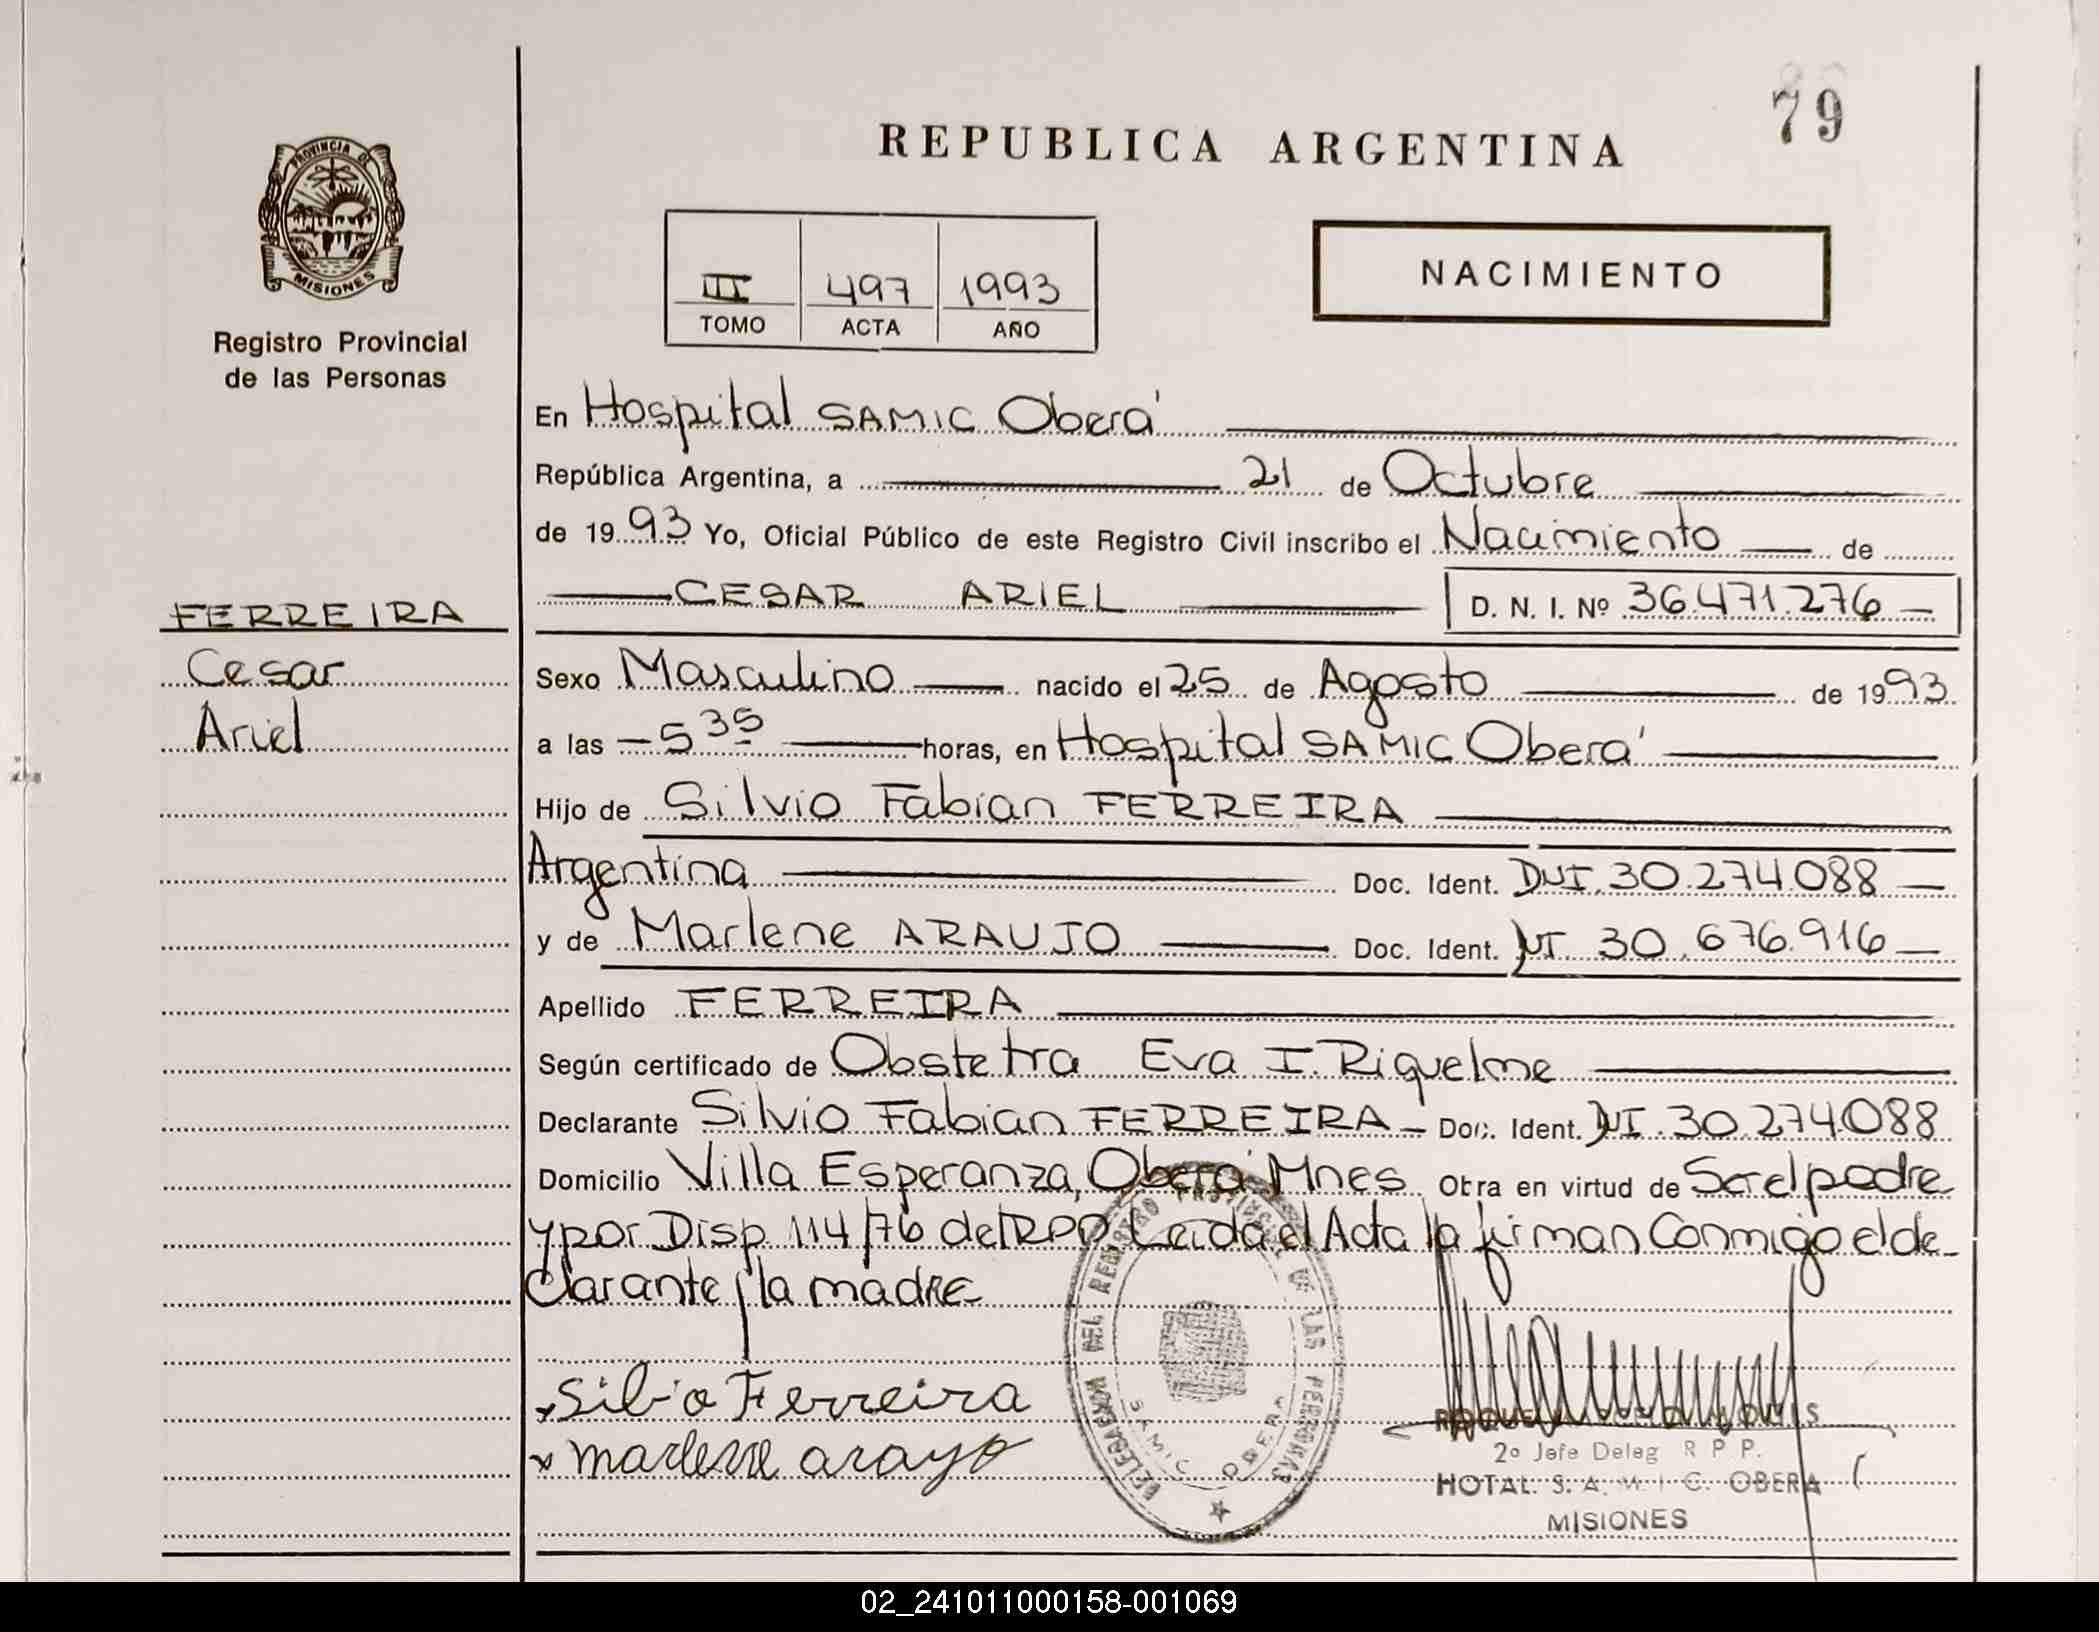 79
REPUBLICA ARGENTINA
PROVINCIA DE
MISIONES
Registro Provincial
de las Personas
III 497 1993
TOMO ACTA AÑO
NACIMIENTO
En Hospital SAMIC Oberá
República Argentina, a 21 de Octubre
de 1993 Yo, Oficial Público de este Registro Civil inscribo el Nacimiento de
CESAR ARIEL D. N. I. Nº 36.471.276
FERREIRA
Cesar
Ariel
Sexo Masculino nacido el 25 de Agosto de 1993
a las 5 35 horas, en Hospital SAMIC Oberá
Hijo de Silvio Fabian FERREIRA
Argentina Doc. Ident. DNI. 30.274.088
y de Marlene ARAUJO Doc. Ident. NI 30.676.916
Apellido FERREIRA
Según certificado de Obstetra Eva I. Riquelme
Declarante Silvio Fabian FERREIRA Doc. Ident. DNI. 30.274.088
Domicilio Villa Esperanza, Oberá Mnes Obra en virtud de Ser el padre
y por Disp. 114/76 del RPP Leida el Acta la firman Conmigo el de-
clarante y la madre
Silbio Ferreira
marlene arayo
DELEGACION DEL REGISTRO PROVINCIAL DE LAS PERSONAS
SAMIC OBERA
2º Jefe Deleg R P P.
HOTAL. S. A. M. I. C. OBERA
MISIONES
02_241011000158-001069